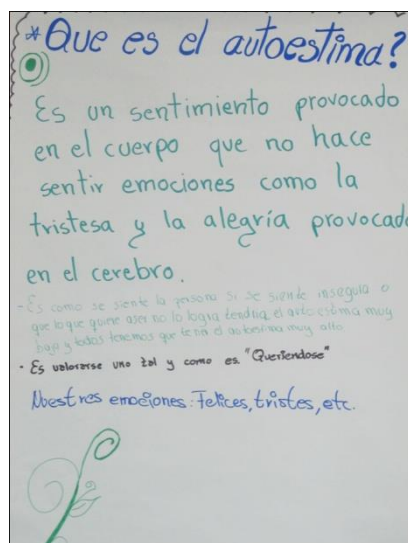 *Que es el autoestima?
Es un sentimiento provocado
en el cuerpo que no hace
sentir emociones como la
tristesa y la alegría provocado
en el cerebro.
- Es como se siente la persona si se siente insegula o
que lo que quiere aser no lo logra tendria el autoestima muy
baja y todos tenemos que tener el autoestima muy alto
· Es valorarse uno tal y como es. "Queriendose"
Nuestras emociones: Felices, tristes, etc.